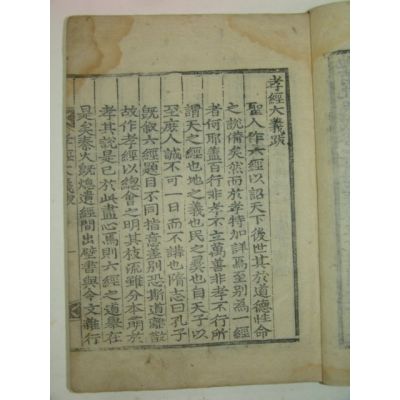 孝經大義跋
聖人作六經以詔天下後世其於道德性命
之說備矣然而於孝特加詳焉至別為一經
者何耶蓋百行非孝不立萬善非孝不行所
謂天之經也地之義也民之
也自天子以
至庶人誠不可一日而不講也隋志曰孔子
旣叙六經題目不同指意差別恐斯道離散
故作孝經以總會之明其枝流雖分本萌於
孝其說是已於此盡心焉則六經之道擧在
是矣秦火旣熄遺經間出壁書與今文雜行